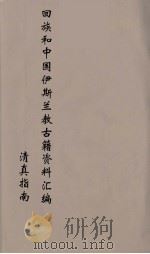 回族和中国伊斯兰教古籍资料汇编
清真指南
mtoou.info